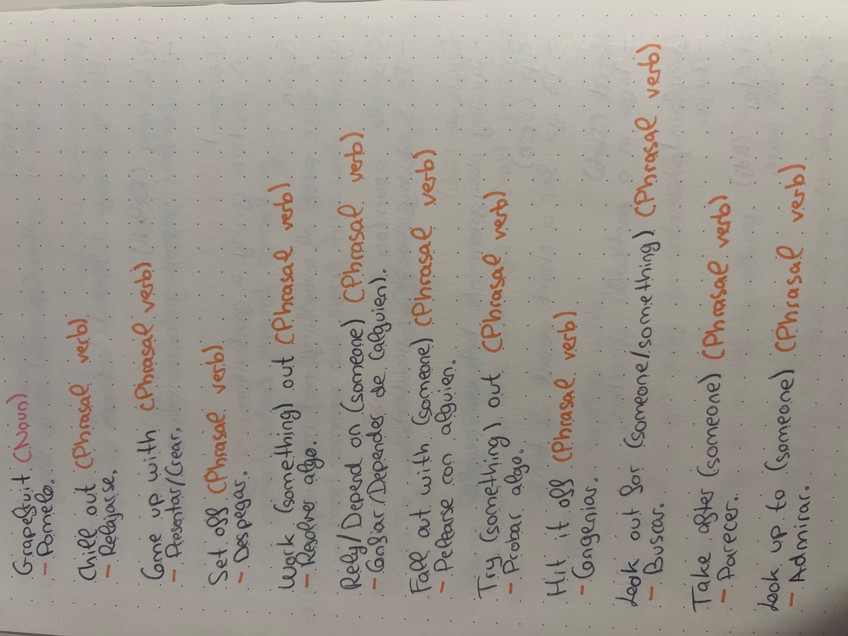 Grapefruit (Noun)
- Pomelo.
Chill out (Phrasal verb)
- Relajarse.
Come up with (Phrasal verb)
- Presentar/Crear.
Set off (Phrasal verb)
- Despegar.
Work (something) out (Phrasal verb)
- Resolver algo.
Rely/Depend on (someone) (Phrasal verb)
- Confiar/Depender de (alguien).
Fall out with (someone) (Phrasal verb)
- Pelearse con alguien.
Try (something) out (Phrasal verb)
- Probar algo.
Hit it off (Phrasal verb)
- Congeniar.
Look out for (someone/something) (Phrasal verb)
- Buscar.
Take after (someone) (Phrasal verb)
- Parecer.
Look up to (someone) (Phrasal verb)
- Admirar.